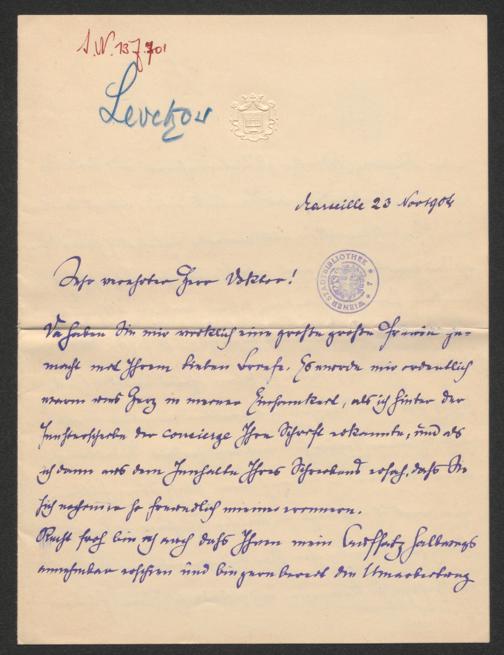 I.N. 137.701
Levetzow
Marseille 23 Nov 1904
WIENER STADTBIBLIOTHEK
Sehr verehrter Herr Doktor!
Da haben Sie mir wirklich eine große große Freude ge-
macht mit Ihrem lieben Briefe. Es wurde mir ordentlich
warm ums Herz in meiner Einsamkeit, als ich hinter der
Fensterscheibe der concierge Ihre Schrift erkannte, und als
ich dann aus dem Inhalte Ihres Schreibens ersah, dass Sie
sich noch immer so freundlich meiner erinnern.
Recht froh bin ich auch dass Ihnen mein Aufsatz halbwegs
annehmbar erschien und bin gern bereit die Umarbeitung